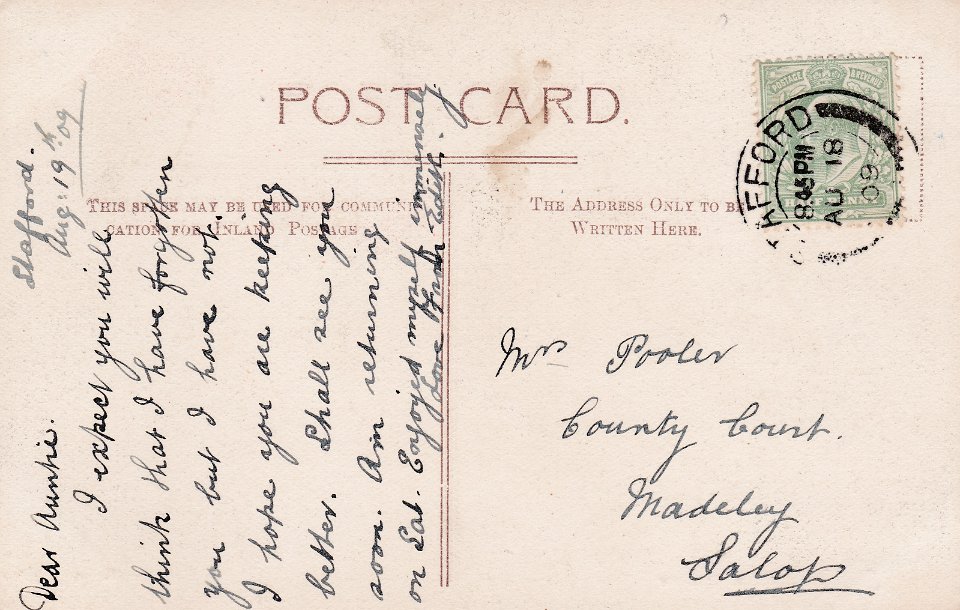 POST CARD.
THIS SPACE MAY BE USED FOR COMMUNI-
CATION FOR INLAND POSTAGE
THE ADDRESS ONLY TO BE
WRITTEN HERE.
POSTAGE REVENUE
HALF PENNY
STAFFORD
8.45PM
AU 18
09
Stafford.
Aug: 19th 09
Dear Auntie.
I expect you will
think that I have forgotten
you but I have not.
I hope you are keeping
better. Shall see you
soon. Am returning
on Sat. Enjoyed myself immensely
Love from Edith.
Mrs Pooler
County Court.
Madeley
Salop